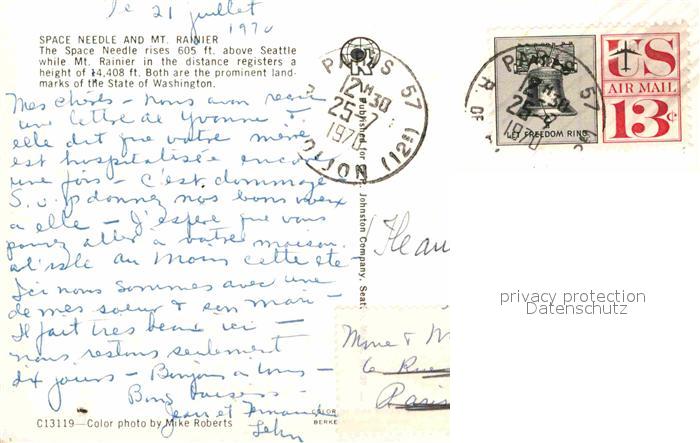 le 21 juillet
1970
SPACE NEEDLE AND MT. RAINIER
The Space Needle rises 605 ft. above Seattle
while Mt. Rainier in the distance registers a
height of 14,408 ft. Both are the prominent land-
marks of the State of Washington.
Mes chers - nous avon reçu
une lettre de Yvonne &
elle dit que votre mère
est hospitalisée encore
une fois - C'est dommage
S.v.p donnez nos bons vœux
a elle - J'espère que vous
pouvez aller a votre maison
a l'isle au moins cette éte -
Ici nous sommes avec une
de mes soeur & son mari -
Il fait tres beau ici -
nous restons seulement
dix jours - Bonjour a tous -
Bons baisers -
Jean et
C13119—Color photo by Mike Roberts
COLOR
BERKE
Published for
Johnston Company, Seat
PARIS 57
12H30
25-7
1970
(12e)
LET FREEDOM RING
US
AIR MAIL
13¢
PARIS 57
12H30
1970
Mme &
6 Rue
Paris
privacy protection
Datenschutz